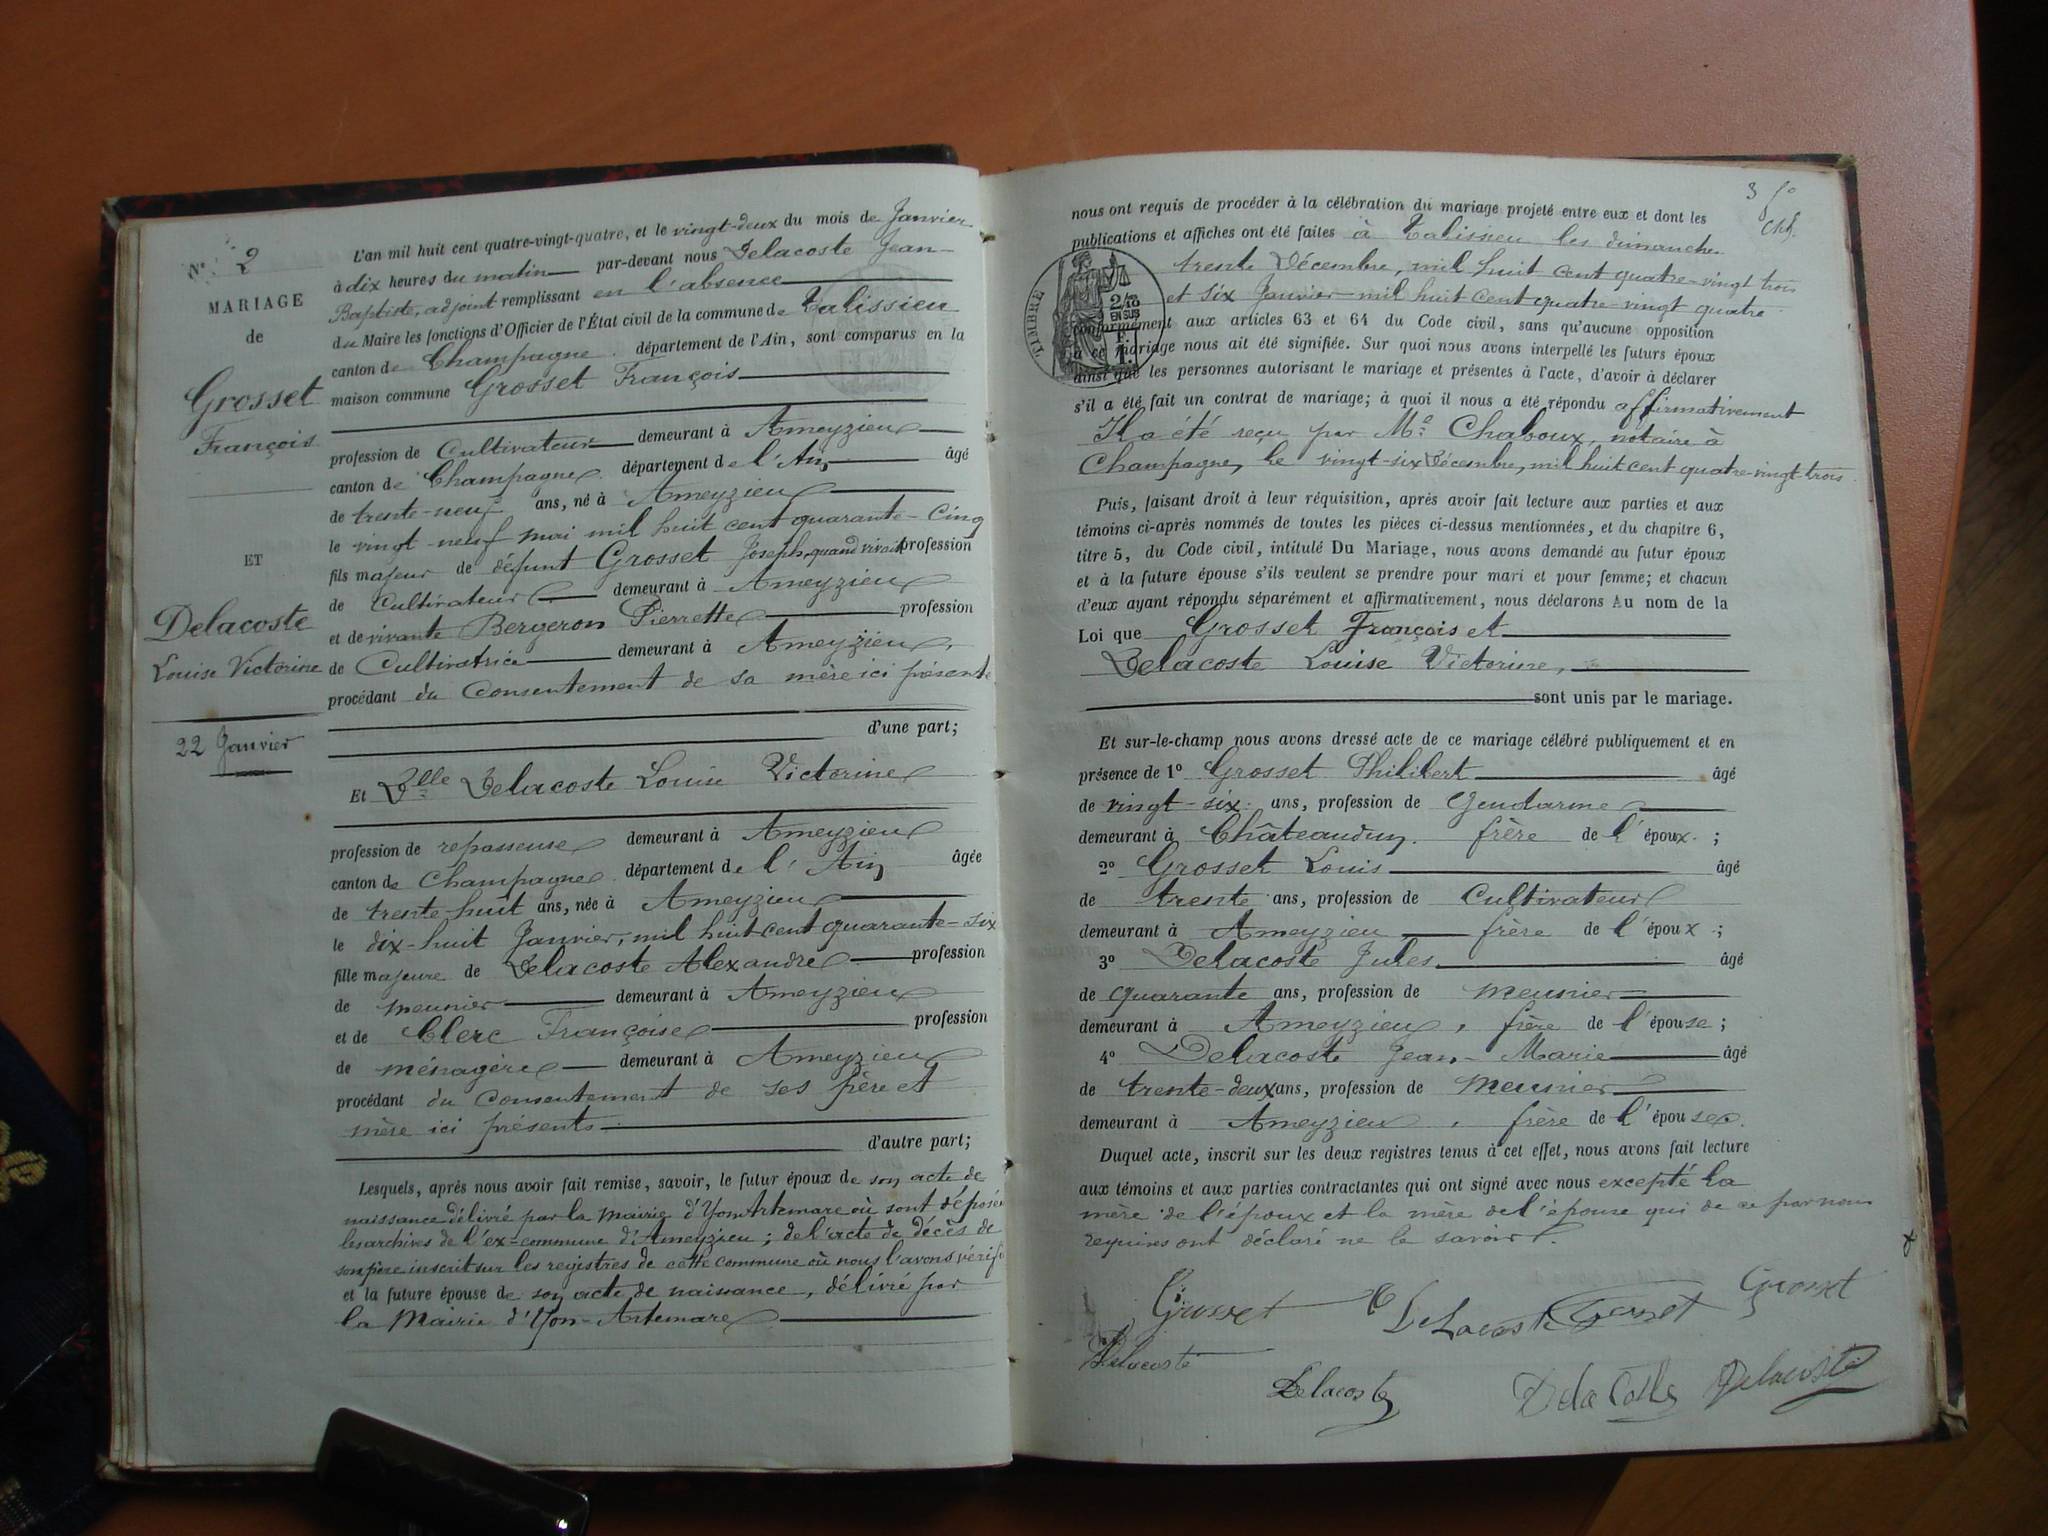 N° 2
MARIAGE
de
Grosset
François
ET
Delacoste
Louise Victorine
22 Janvier
L'an mil huit cent quatre-vingt-quatre, et le vingt-deux du mois de Janvier
à dix heures du matin par-devant nous Delacoste Jean-
Baptiste, adjoint remplissant en l'absence
du Maire les fonctions d'Officier de l'État civil de la commune de Talissieu
canton de Champagne département de l'Ain, sont comparus en la
maison commune Grosset François
profession de Cultivateur demeurant à Ameyzieu
canton de Champagne département de l'Ain âgé
de trente-neuf ans, né à Ameyzieu
le vingt-neuf mai mil huit cent quarante-cinq
fils majeur de défunt Grosset Joseph, quand vivait profession
de Cultivateur demeurant à Ameyzieu
et de vivante Bergeron Pierrette profession
de Cultivatrice demeurant à Ameyzieu,
procédant du Consentement de sa mère ici présente
d'une part;
Et Dlle Delacoste Louise Victorine
profession de repasseuse demeurant à Ameyzieu
canton de Champagne département de l'Ain âgée
de trente-huit ans, née à Ameyzieu
le dix-huit Janvier, mil huit cent quarante-six
fille majeure de Delacoste Alexandre profession
de meunier demeurant à Ameyzieu
et de Clerc Françoise profession
de ménagère demeurant à Ameyzieu
procédant du Consentement de ses père et
mère ici présents
d'autre part;
Lesquels, après nous avoir fait remise, savoir, le futur époux de son acte de
naissance délivré par la Mairie d'Yon-Artemare où sont déposées
les archives de l'ex-commune d'Ameyzieu; de l'acte de décès de
son père inscrit sur les registres de cette commune où nous l'avons vérifié
et la future épouse de son acte de naissance, délivré par
la Mairie d'Yon-Artemare
3
nous ont requis de procéder à la célébration du mariage projeté entre eux et dont les
publications et affiches ont été faites à Talissieu les dimanches
trente Décembre, mil huit cent quatre-vingt trois
et six Janvier mil huit cent quatre-vingt quatre
TIMBRE
2/10
EN SUS
1 F.
conformément aux articles 63 et 64 du Code civil, sans qu'aucune opposition
à ce mariage nous ait été signifiée. Sur quoi nous avons interpellé les futurs époux
ainsi que les personnes autorisant le mariage et présentes à l'acte, d'avoir à déclarer
s'il a été fait un contrat de mariage; à quoi il nous a été répondu affirmativement
Il a été reçu par Me Chaboux, notaire à
Champagne, le vingt-six Décembre, mil huit cent quatre-vingt-trois
Puis, faisant droit à leur réquisition, après avoir fait lecture aux parties et aux
témoins ci-après nommés de toutes les pièces ci-dessus mentionnées, et du chapitre 6,
titre 5, du Code civil, intitulé Du Mariage, nous avons demandé au futur époux
et à la future épouse s'ils veulent se prendre pour mari et pour femme; et chacun
d'eux ayant répondu séparément et affirmativement, nous déclarons Au nom de la
Loi que Grosset François et
Delacoste Louise Victorine,
sont unis par le mariage.
Et sur-le-champ nous avons dressé acte de ce mariage célébré publiquement et en
présence de 1° Grosset Philibert âgé
de vingt-six ans, profession de Gendarme
demeurant à Châteaudun frère de l'époux ;
2° Grosset Louis âgé
de trente ans, profession de Cultivateur
demeurant à Ameyzieu frère de l'époux ;
3° Delacoste Jules âgé
de quarante ans, profession de meunier
demeurant à Ameyzieu, frère de l'épouse ;
4° Delacoste Jean-Marie âgé
de trente-deux ans, profession de meunier
demeurant à Ameyzieu, frère de l'épouse.
Duquel acte, inscrit sur les deux registres tenus à cet effet, nous avons fait lecture
aux témoins et aux parties contractantes qui ont signé avec nous excepté la
mère de l'époux et la mère de l'épouse qui de ce par nous
requises ont déclaré ne le savoir.
Grosset DeLacoste Grosset Grosset
Delacoste Delacoste DelaCoste Delacoste